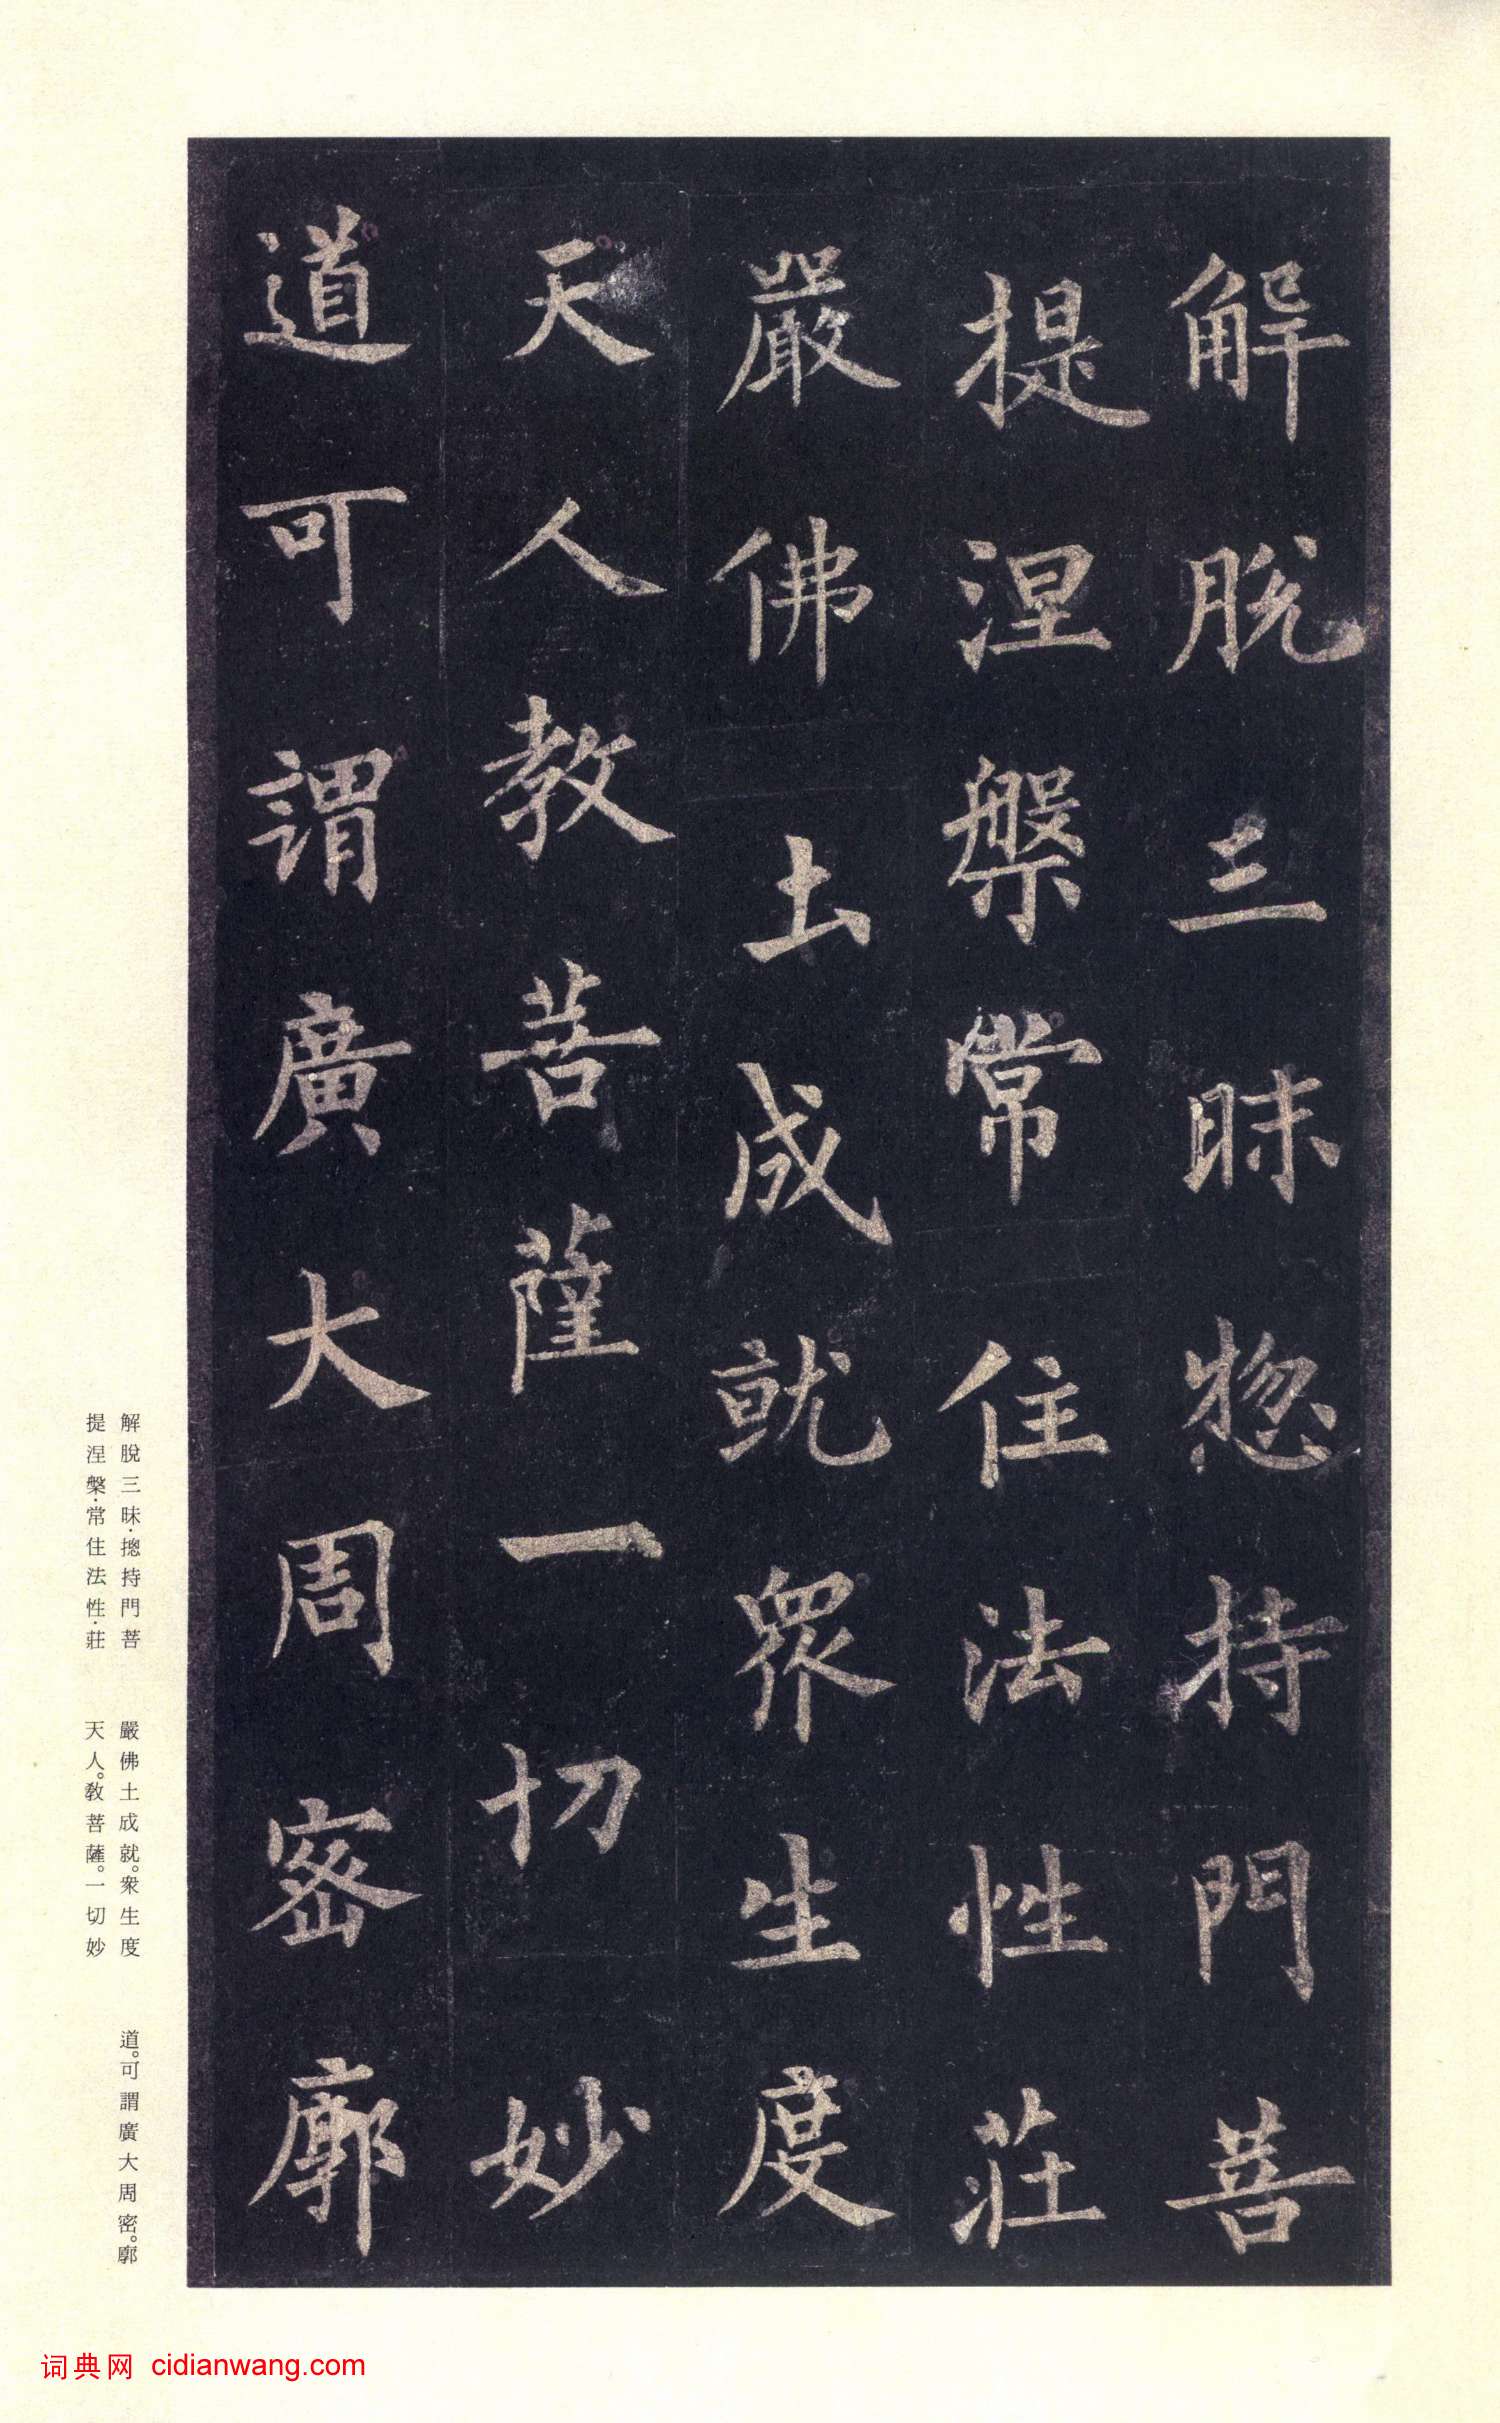 解脫三昧惣持門菩
提涅槃常住法性莊
嚴佛土成就眾生度
天人教菩薩一切妙
道可謂廣大周密廓
解脫三昧·摠持門菩
提涅槃·常住法性·莊
嚴佛土成就。衆生度
天人。教菩薩。一切妙
道。可謂廣大周密。廓
词典网 cidianwang.com